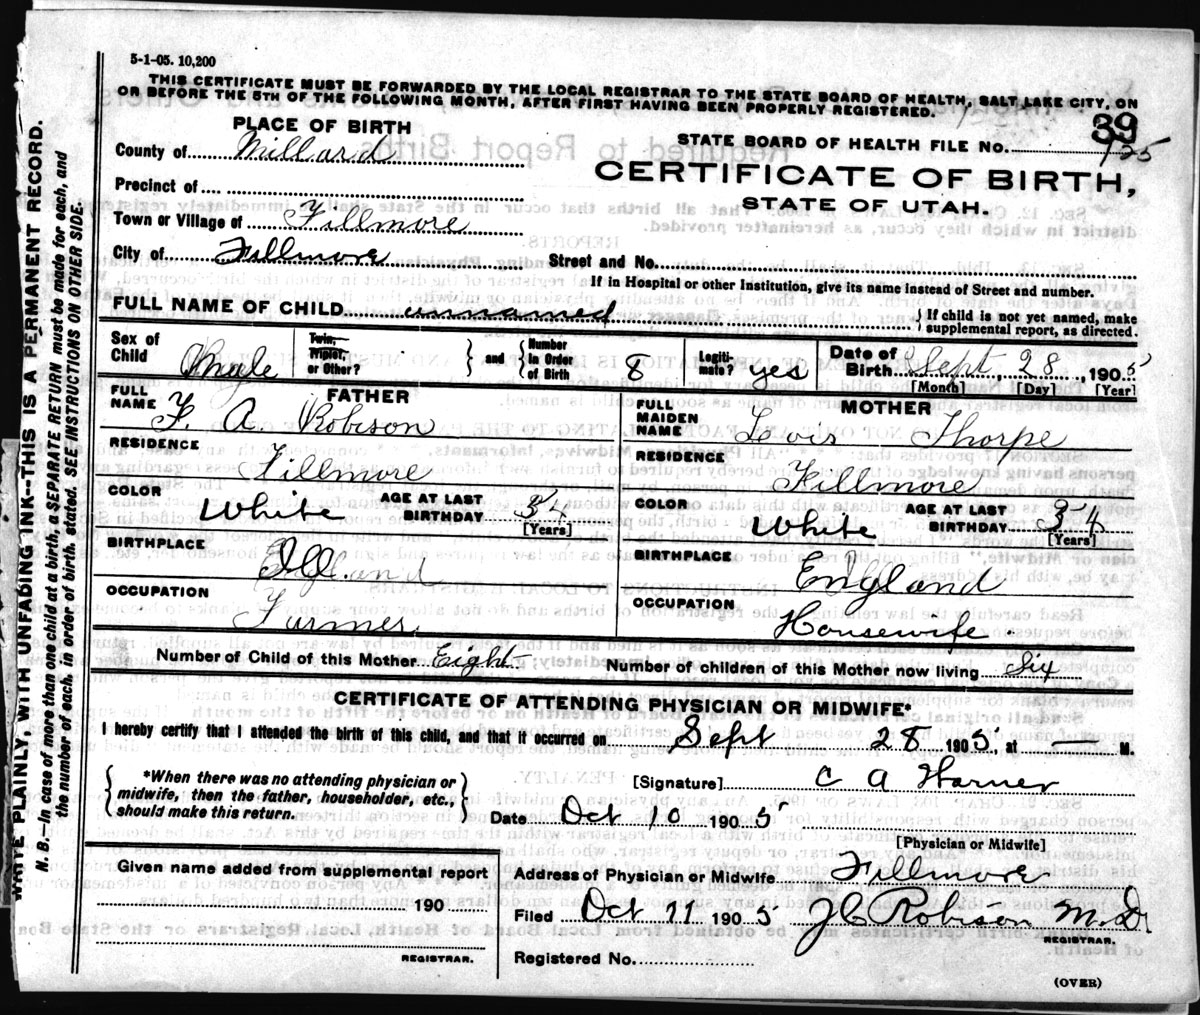 5-1-05. 10,200
THIS CERTIFICATE MUST BE FORWARDED BY THE LOCAL REGISTRAR TO THE STATE BOARD OF HEALTH, SALT LAKE CITY, ON
OR BEFORE THE 5TH OF THE FOLLOWING MONTH, AFTER FIRST HAVING BEEN PROPERLY REGISTERED.
WRITE PLAINLY, WITH UNFADING INK--THIS IS A PERMANENT RECORD.
N. B. In case of more than one child at a birth, a SEPARATE RETURN must be made for each, and
the number of each, in order of birth, stated. SEE INSTRUCTIONS ON OTHER SIDE.
PLACE OF BIRTH
39
County of Millard
STATE BOARD OF HEALTH FILE NO. 125
Precinct of
CERTIFICATE OF BIRTH,
STATE OF UTAH.
Town or Village of Fillmore
City of Fillmore
Street and No.
If in Hospital or other Institution, give its name instead of Street and number.
FULL NAME OF CHILD unnamed
{ If child is not yet named, make
supplemental report, as directed.
Sex of Child Male
Twin, Triplet, or Other?
and
Number in Order of Birth 8
Legitimate? yes
Date of Birth Sept 28, 1905
[Month] [Day] [Year]
FATHER
FULL NAME F. A. Robison
MOTHER
FULL MAIDEN NAME Lois Thorpe
RESIDENCE Fillmore
RESIDENCE Fillmore
COLOR White
AGE AT LAST BIRTHDAY 54
[Years]
COLOR White
AGE AT LAST BIRTHDAY 34
[Years]
BIRTHPLACE Ill.
BIRTHPLACE England
OCCUPATION Farmer
OCCUPATION Housewife
Number of Child of this Mother Eight
Number of children of this Mother now living Six
CERTIFICATE OF ATTENDING PHYSICIAN OR MIDWIFE*
I hereby certify that I attended the birth of this child, and that it occurred on Sept 28 1905, at — M.
{ *When there was no attending physician or
midwife, then the father, householder, etc.,
should make this return. }
[Signature] C A Warner
Date Oct 10 1905
[Physician or Midwife]
Given name added from supplemental report
190
REGISTRAR.
Address of Physician or Midwife Fillmore
Filed Oct 11 1905 J C Robison M.D
REGISTRAR.
Registered No.
(OVER)